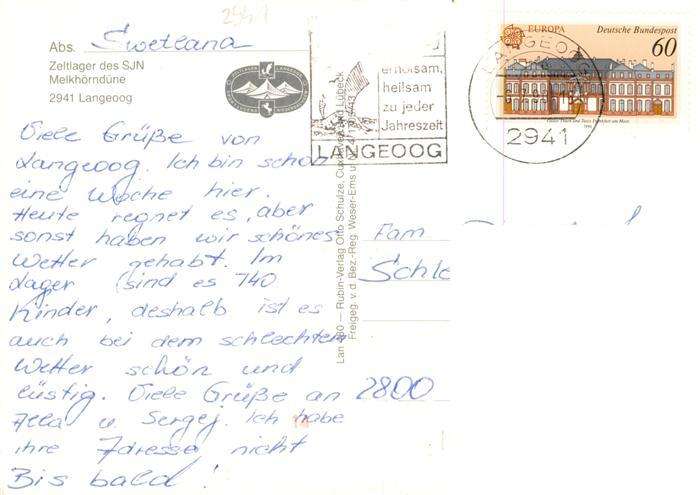 Abs. Swetlana
Zeltlager des SJN
Melkhörndüne
2941 Langeoog
erholsam,
heilsam
zu jeder
Jahreszeit
LANGEOOG
EUROPA Deutsche Bundespost
60
LANGEOOG
2941
Viele Grüße von
Langeoog. Ich bin schon
eine Woche hier.
Heute regnet es, aber
sonst haben wir schönes
Wetter gehabt. Im
Lager sind es 740
Kinder, deshalb ist es
auch bei dem schlechtem
Wetter schön und
lüstig. Viele Grüße an
Alla u. Sergej. Ich habe
ihre Adresse nicht
Bis bald!
Lan 480 — Rubin-Verlag Otto Schulze, Lübeck
Freigeg. v. d. Bez.-Reg. Weser-Ems
Fam
Schle
2800